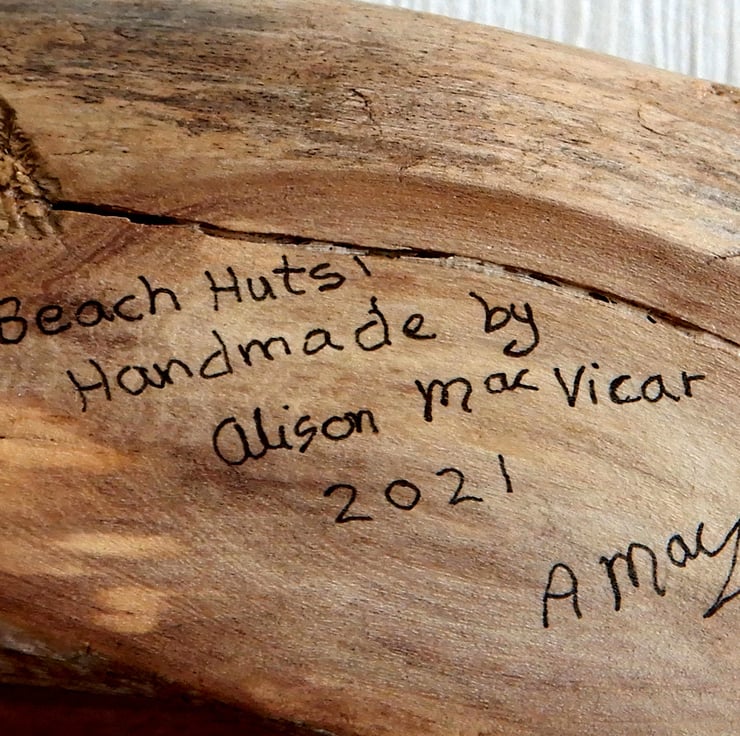 Beach Huts'
Handmade by
Alison MacVicar
2021
A Mac